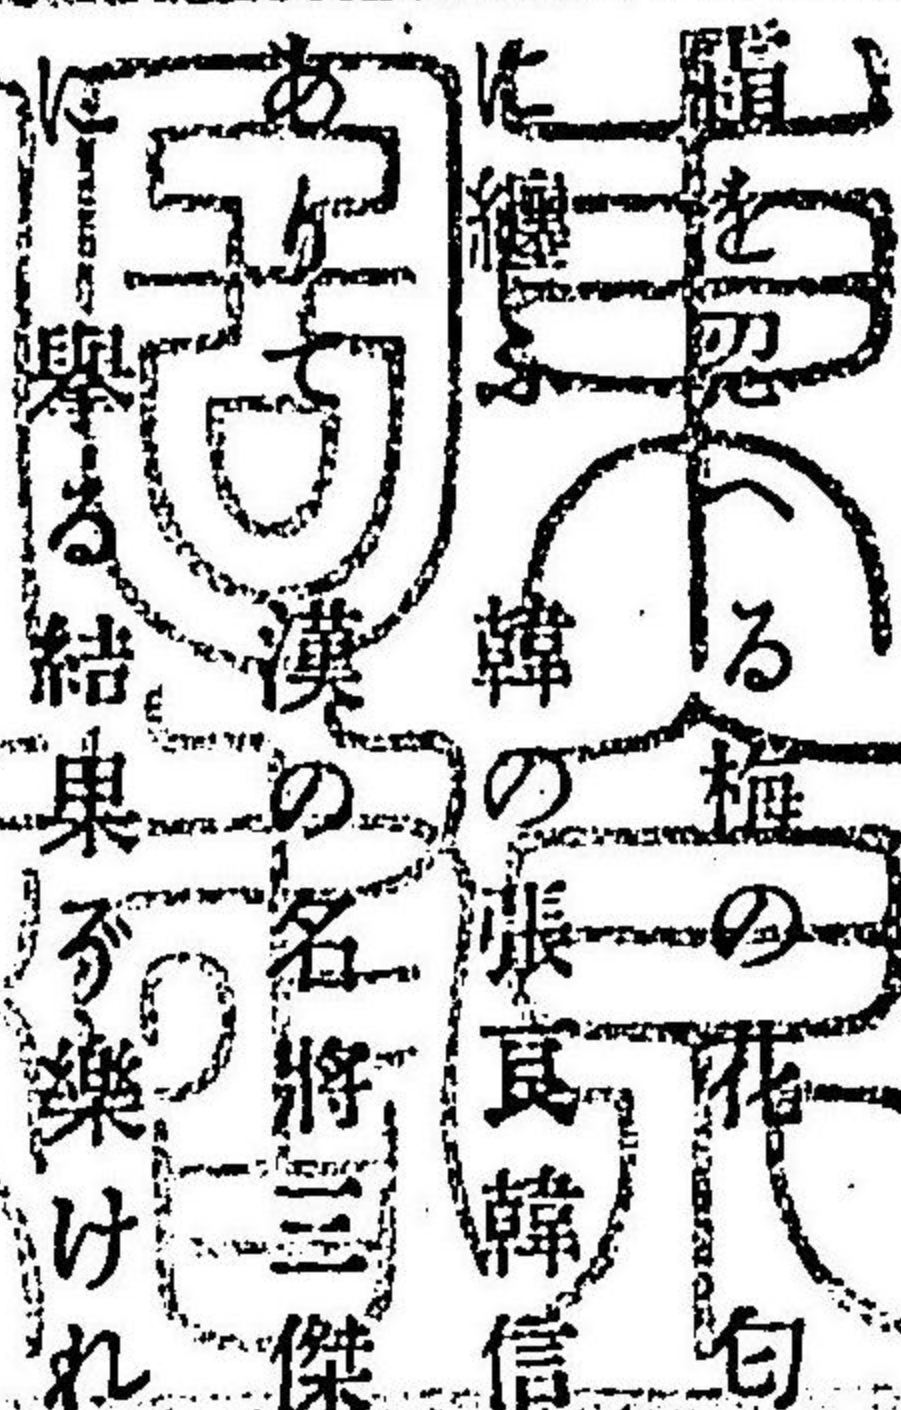 を忍へる梅の花匂
に ふ韓の張良韓信
ありて漢の名將三傑
に擧る結果ぞ樂けれ